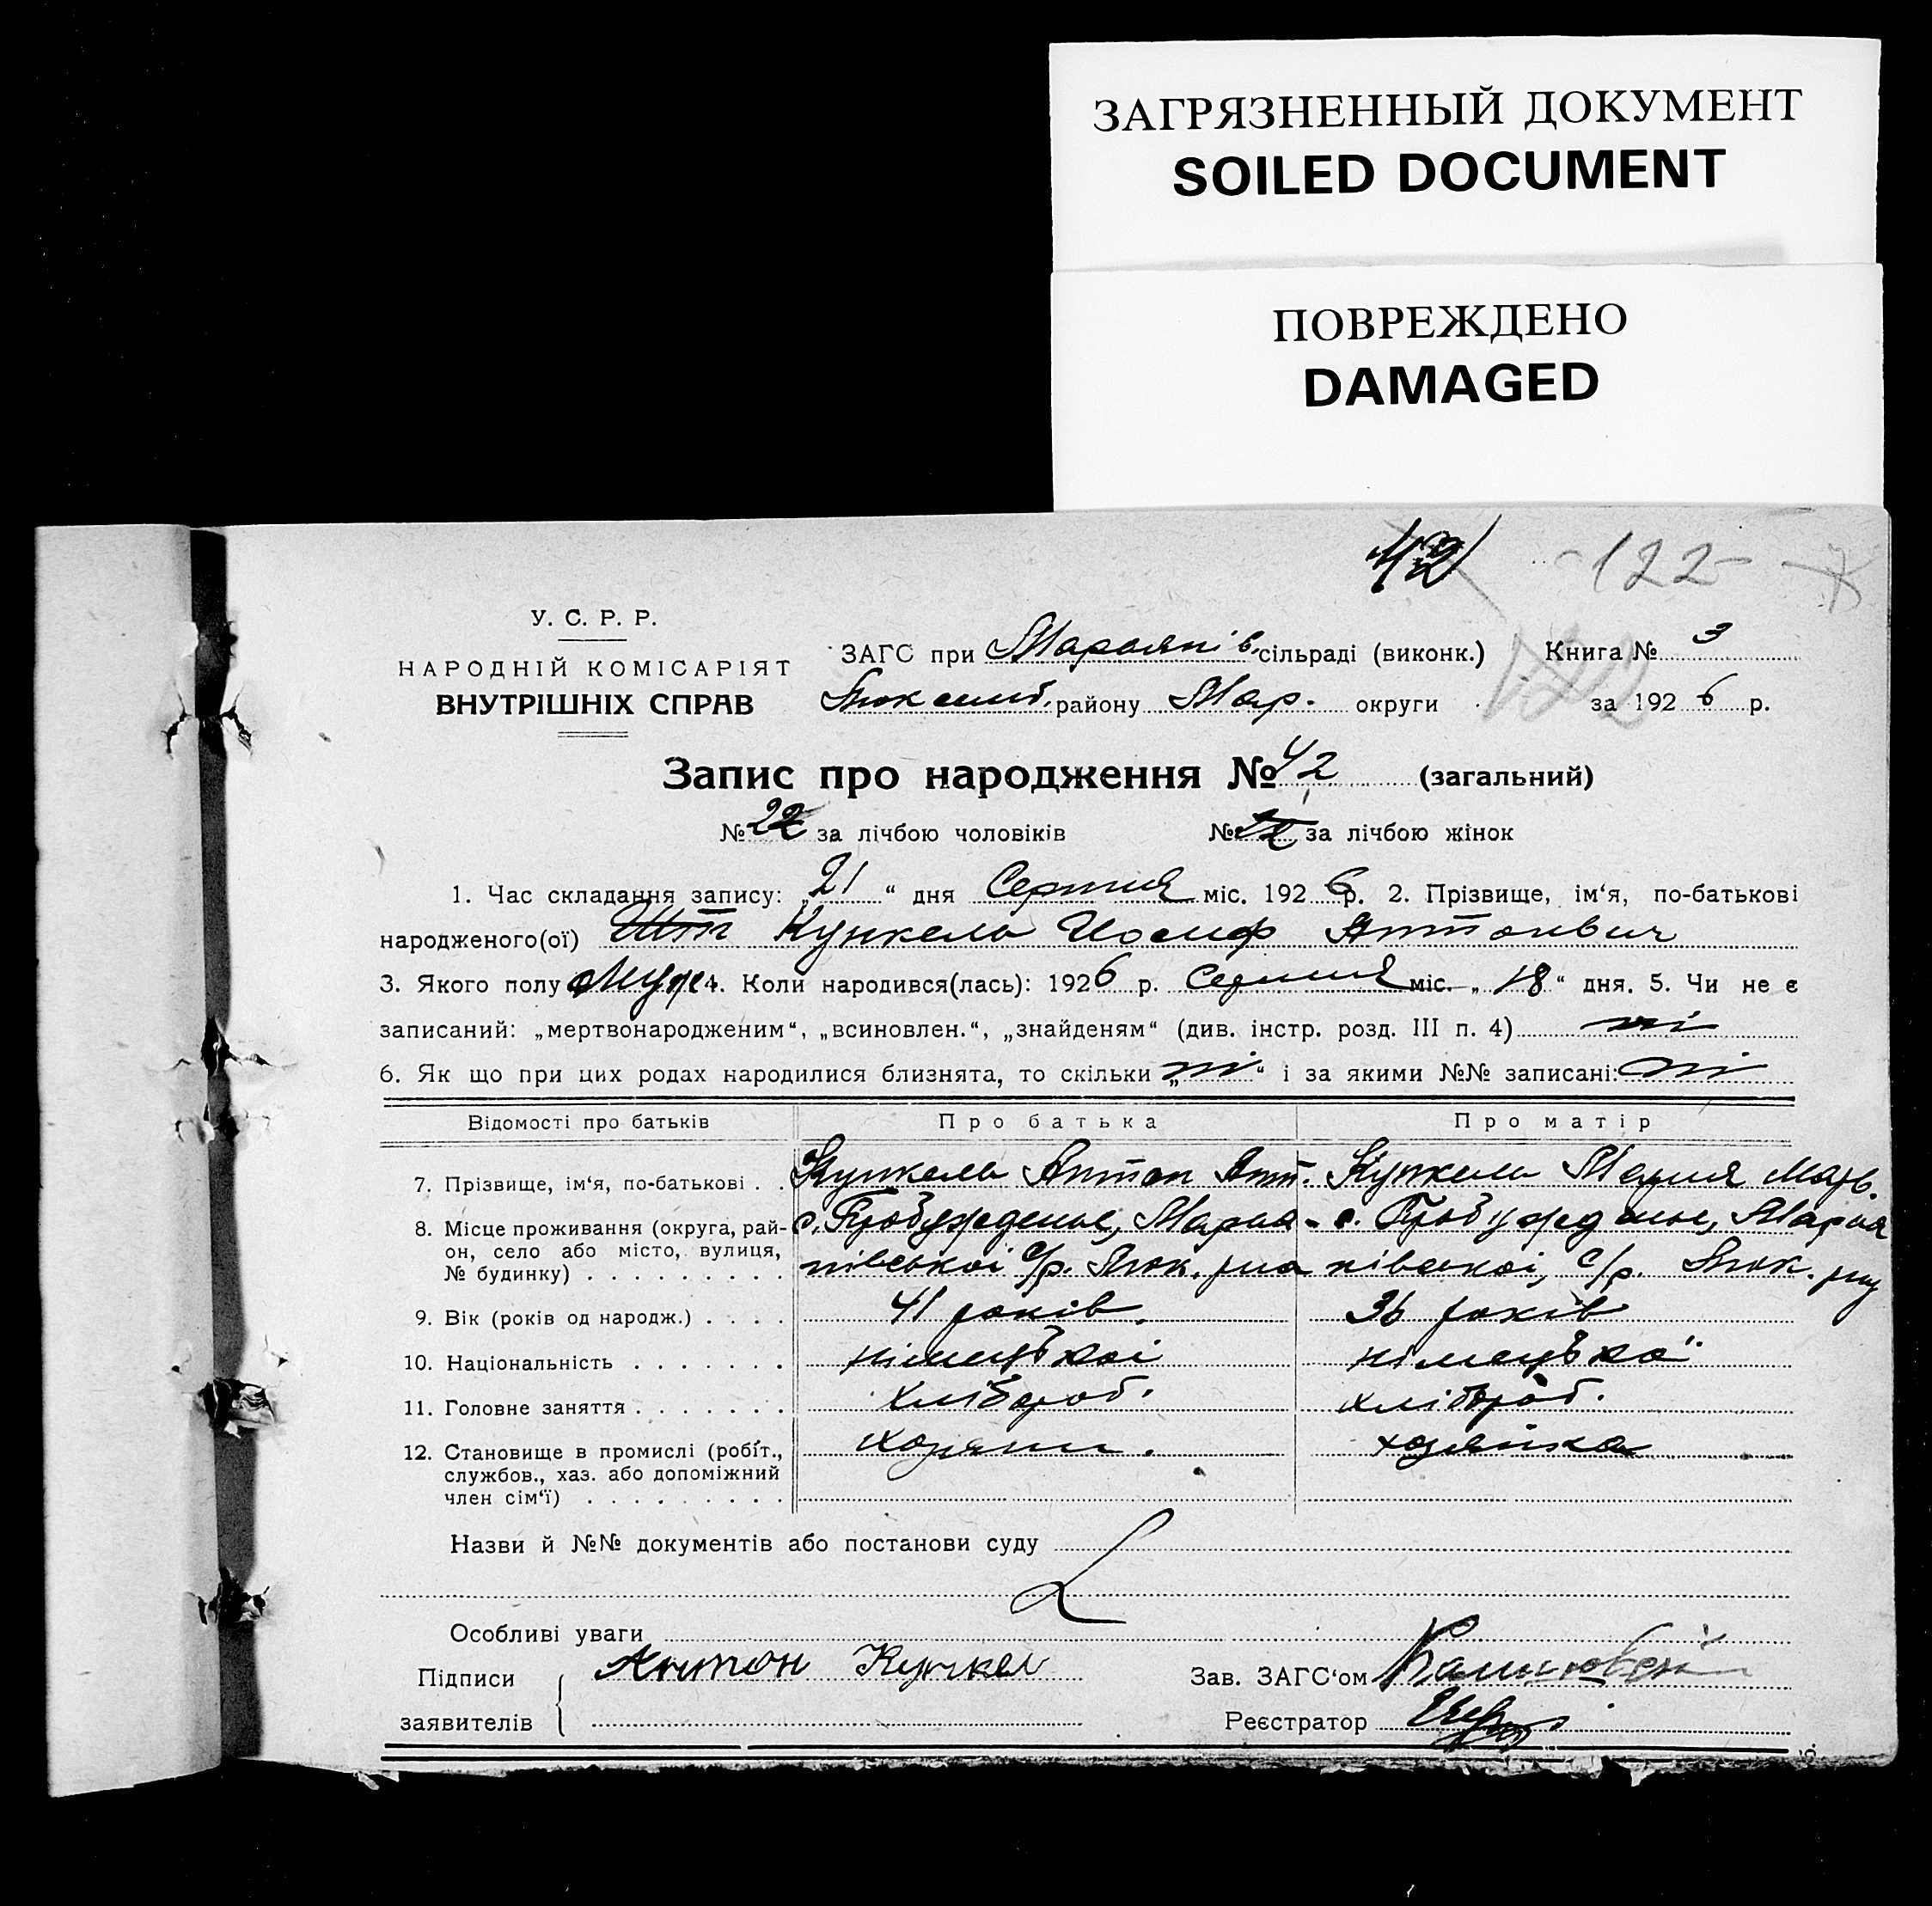 ЗАГРЯЗНЕННЫЙ ДОКУМЕНТ
SOILED DOCUMENT
ПОВРЕЖДЕНО
DAMAGED
42 -122-
У. С. Р. Р.
НАРОДНІЙ КОМІСАРІЯТ
ВНУТРІШНІХ СПРАВ
ЗАГС при сільраді (виконк.) Книга № 3
району Мар. округи за 1926 р.
122
Запис про народження № 42 (загальний)
№ 22 за лічбою чоловіків № за лічбою жінок
1. Час складання запису: „21“ дня Серпня міс. 1926 р. 2. Прізвище, ім‘я, по-батькові
народженого(ої) Кункель Иосиф Антонович
3. Якого полу Муж. 4. Коли народився(лась): 1926 р. Серпня міс. „18“ дня. 5. Чи не є
записаний: „мертвонародженим“, „всиновлен.“, „знайденям“ (див. інстр. розд. III п. 4) ні
6. Як що при цих родах народилися близнята, то скільки „ні“ і за якими №№ записані: ні
Відомості про батьків Про батька Про матір
7. Прізвище, ім‘я, по-батькові . . Кункель Антон Ант. Кункель Мария
8. Місце проживання (округа, рай- с. Пробужденье, Мариа- с. Пробужденье, Мариа
он, село або місто, вулиця, нівської с/р. Люк. р-на нівської, с/р. Люк. р-ну
№ будинку) . . . . . . . . .
9. Вік (років од народж.) . . . . 41 років. 36 років
10. Національність . . . . . . . німецької німецької
11. Головне заняття . . . . . . . хлібороб. хлібороб.
12. Становище в промислі (робіт., хозяин. хозяйка
службов., хаз. або допоміжний
член сім‘ї) . . . . . . . . .
Назви й №№ документів або постанови суду
Особливі уваги
Підписи Антон Кункел Зав. ЗАГС‘ом
заявителів Реєстратор